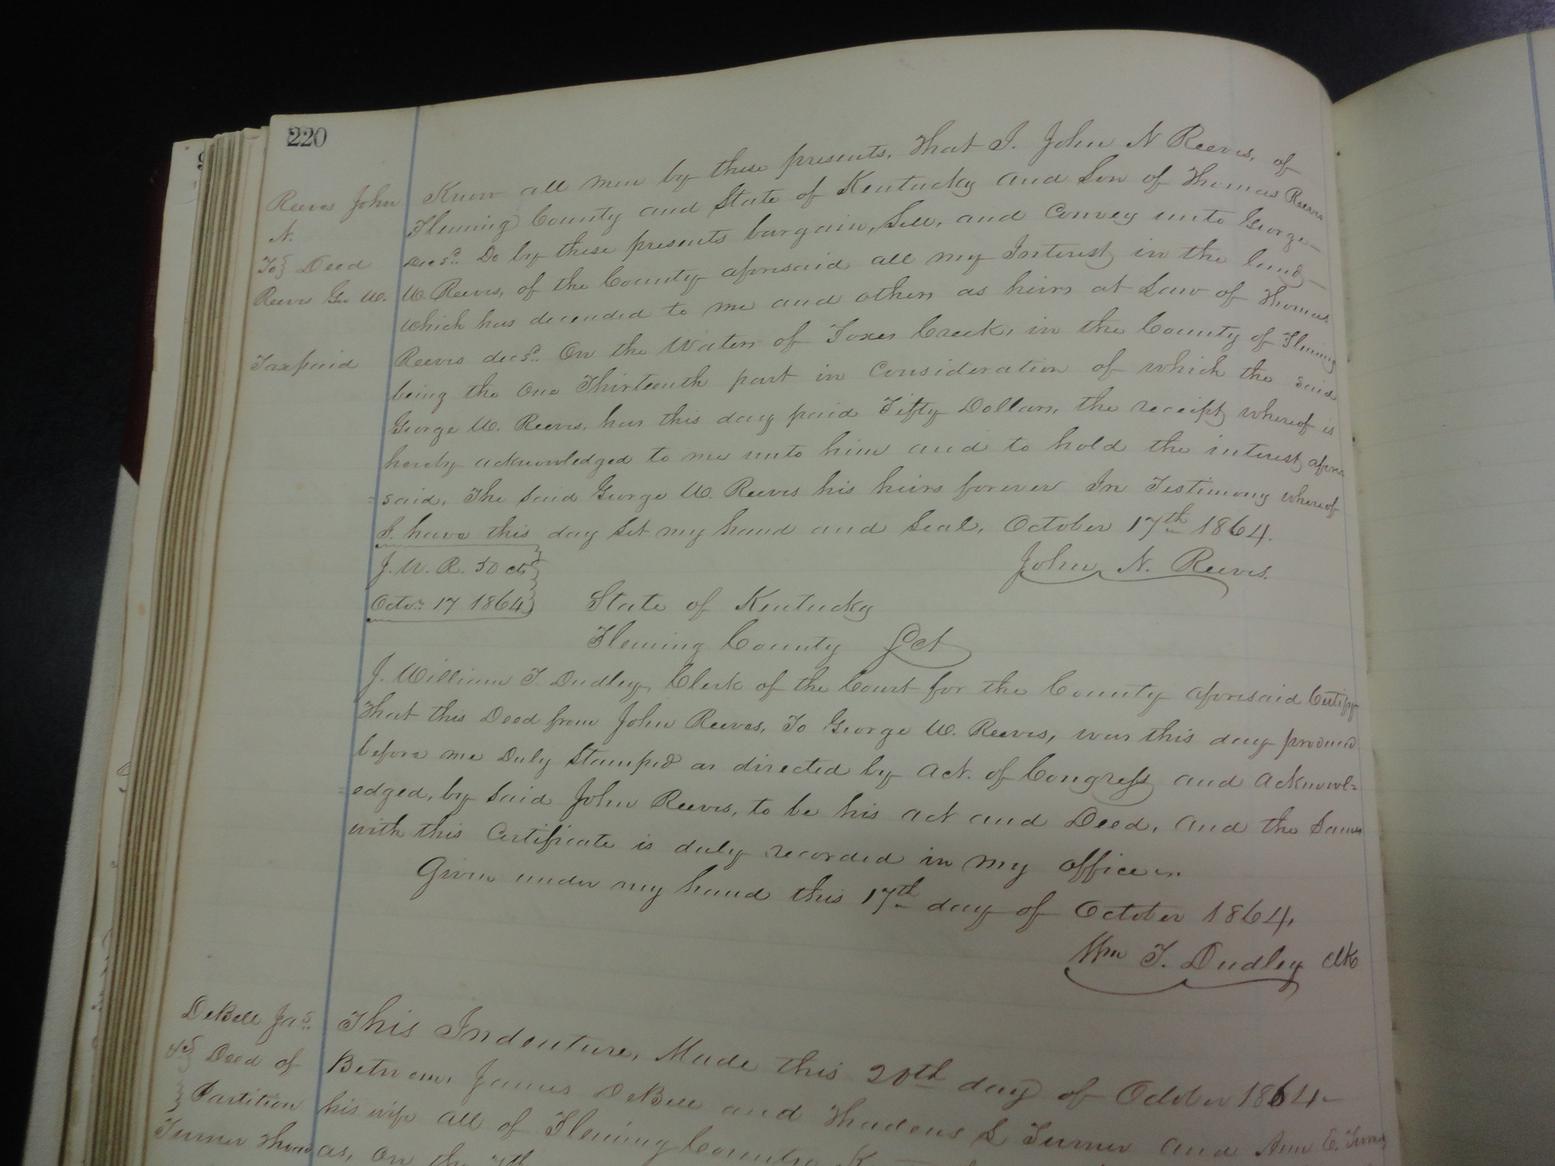 220
Reeves John
N.
To} Deed
Reeves Geo W.
Tax paid
Know all men by these presents, that I. John N Reeves, of
Fleming County and State of Kentucky and Son of Thomas Reeves
decsd. Do by these presents bargain, Sell, and Convey unto George
W Reeves, of the County aforesaid all my Interest in the land
which has decended to me and others as heirs at Law of Thomas
Reeves decsd. On the Waters of Foxes Creek, in the County of Fleming
being the One Thirteenth part in Consideration of which the said
George W. Reeves, has this day paid Fifty Dollars, the receipt whereof is
hereby acknowledged to me unto him and to hold the interest afore
=said, The Said George W. Reeves his heirs forever In Testimony whereof
I. have this day Set my hand and Seal, October 17th 1864.
John N. Reeves.
J. N. R. 50 cts
Octo. 17 1864
State of Kentucky
Fleming County Sct
I. William T. Dudley, Clerk of the Court for the County aforesaid Certify
That this Deed from John Reeves, To George W. Reeves, was this day produced
before me Duly Stamped as directed by Act. of Congress and Acknowl=
=edged, by Said John Reeves, to be his act and Deed, and the Same
with this Certificate is duly recorded in my office
Given under my hand this 17th day of October 1864,
Wm T. Dudley Clk
DeBell Jas.
Deed of
Partition
Turner Thos
This Indenture, Made this 20th day of October 1864
Between James DeBell and Thadeus S Turner and Ann E. Turner
his wife all of Fleming County
as, On the